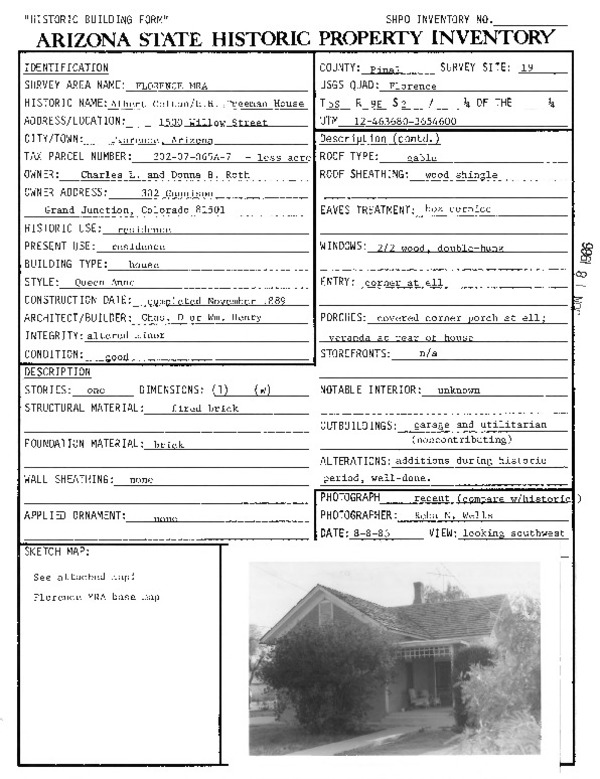 "HISTORIC BUILDING FORM" SHPO INVENTORY NO.
ARIZONA STATE HISTORIC PROPERTY INVENTORY
IDENTIFICATION
SURVEY AREA NAME: FLORENCE MRA
HISTORIC NAME: Albert Colton/ Freeman House
ADDRESS/LOCATION: 1500 Willow Street
CITY/TOWN: Florence, Arizona
TAX PARCEL NUMBER: 202-07-065A-7 - less acre
OWNER: Charles L. and Donna B. Roth
OWNER ADDRESS: 302 Gunnison
Grand Junction, Colorado 81501
HISTORIC USE: residence
PRESENT USE: residence
BUILDING TYPE: house
STYLE: Queen Anne
CONSTRUCTION DATE: completed November 1889
ARCHITECT/BUILDER: Chas. D or Wm. Henty
INTEGRITY: altered minor
CONDITION: good
DESCRIPTION
STORIES: one DIMENSIONS: (l) (w)
STRUCTURAL MATERIAL: fired brick
FOUNDATION MATERIAL: brick
WALL SHEATHING: none
APPLIED ORNAMENT: none
COUNTY: Pinal SURVEY SITE: 19
USGS QUAD: Florence
T 5S R 9E S 2 / ¼ OF THE ¼
UTM 12-463680-3654600
Description (contd.)
ROOF TYPE: gable
ROOF SHEATHING: wood shingle
EAVES TREATMENT: box cornice
WINDOWS: 2/2 wood, double-hung
ENTRY: corner at ell
PORCHES: covered corner porch at ell;
veranda at rear of house
STOREFRONTS: n/a
NOTABLE INTERIOR: unknown
OUTBUILDINGS: garage and utilitarian
(noncontributing)
ALTERATIONS: additions during historic
period, well-done.
PHOTOGRAPH recent (compare w/historic)
PHOTOGRAPHER: N. Wells
DATE: 8-8-85 VIEW: looking southwest
SKETCH MAP:
See attached map:
Florence MRA base map